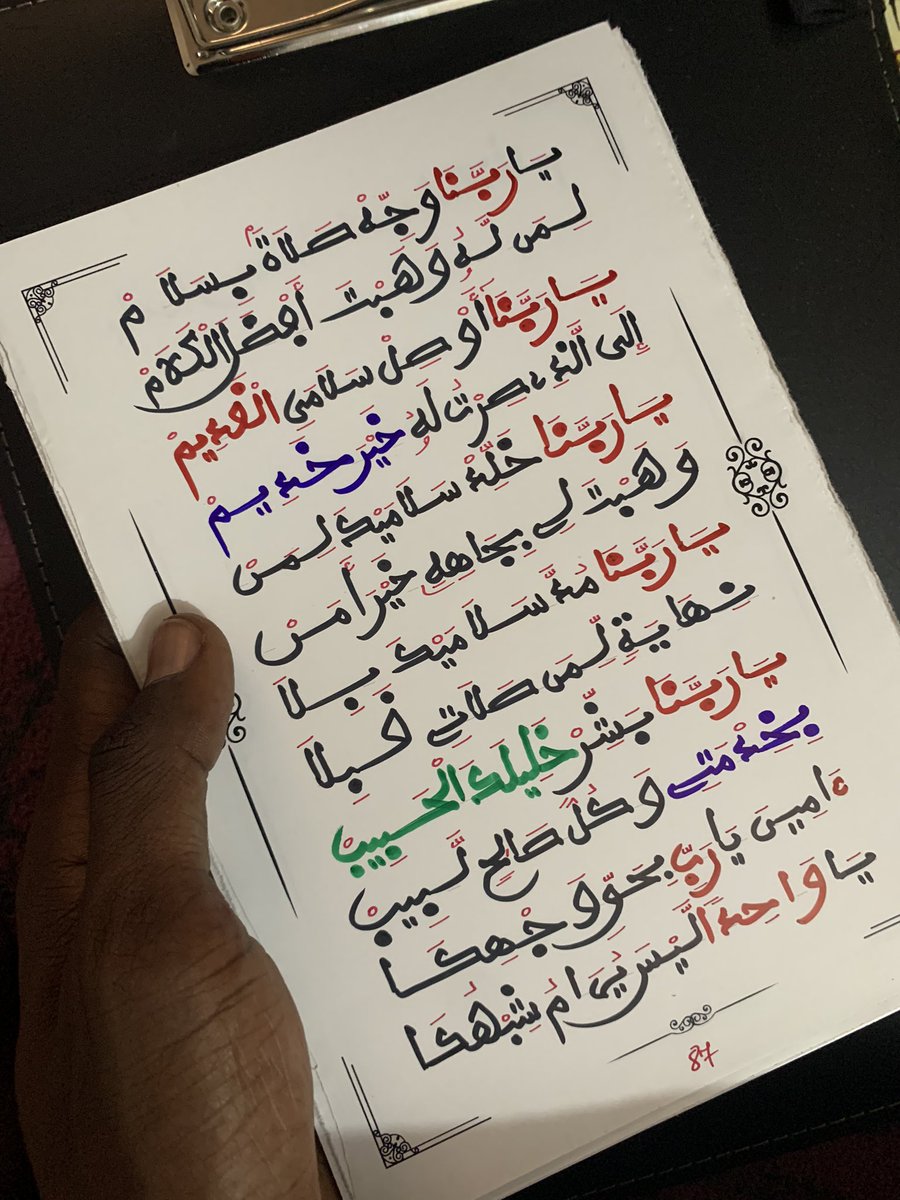 يَا رَبَّنَا وَجِّهْ صَلَاةً بِسَلَامْ
لِمَن لَّهُ وَهَبْتَ أَفْضَلَ الْكَلَامْ
يَا رَبَّنَا أَوْصِلْ سَلَامِيَ الْقَدِيمْ
إِلَى الَّذِي صِرْتُ لَهُ خَيْرَ خَدِيمْ
يَا رَبَّنَا خَلِّدْ سَلَامَيْكَ لِمَنْ
وَهَبْتَ لِي بِجَاهِهِ خَيْرَ أَمَنْ
يَا رَبَّنَا مُدَّ سَلَامَيْكَ بِلَا
نِهَايَةٍ لِّمَن صَلَاتِي قَبِلَا
يَا رَبَّنَا بَشِّرْ خَلِيلَكَ الْحَبِيبْ
بِخِدْمَتِي وَكُلَّ صَالِحٍ لَّبِيبْ
ءَامِينَ يَا رَبِّ بِحَقِّ وَجْهِكَا
يَا وَاحِدًا لَّيْسَ يُرَامُ شِبْهُكَا
87